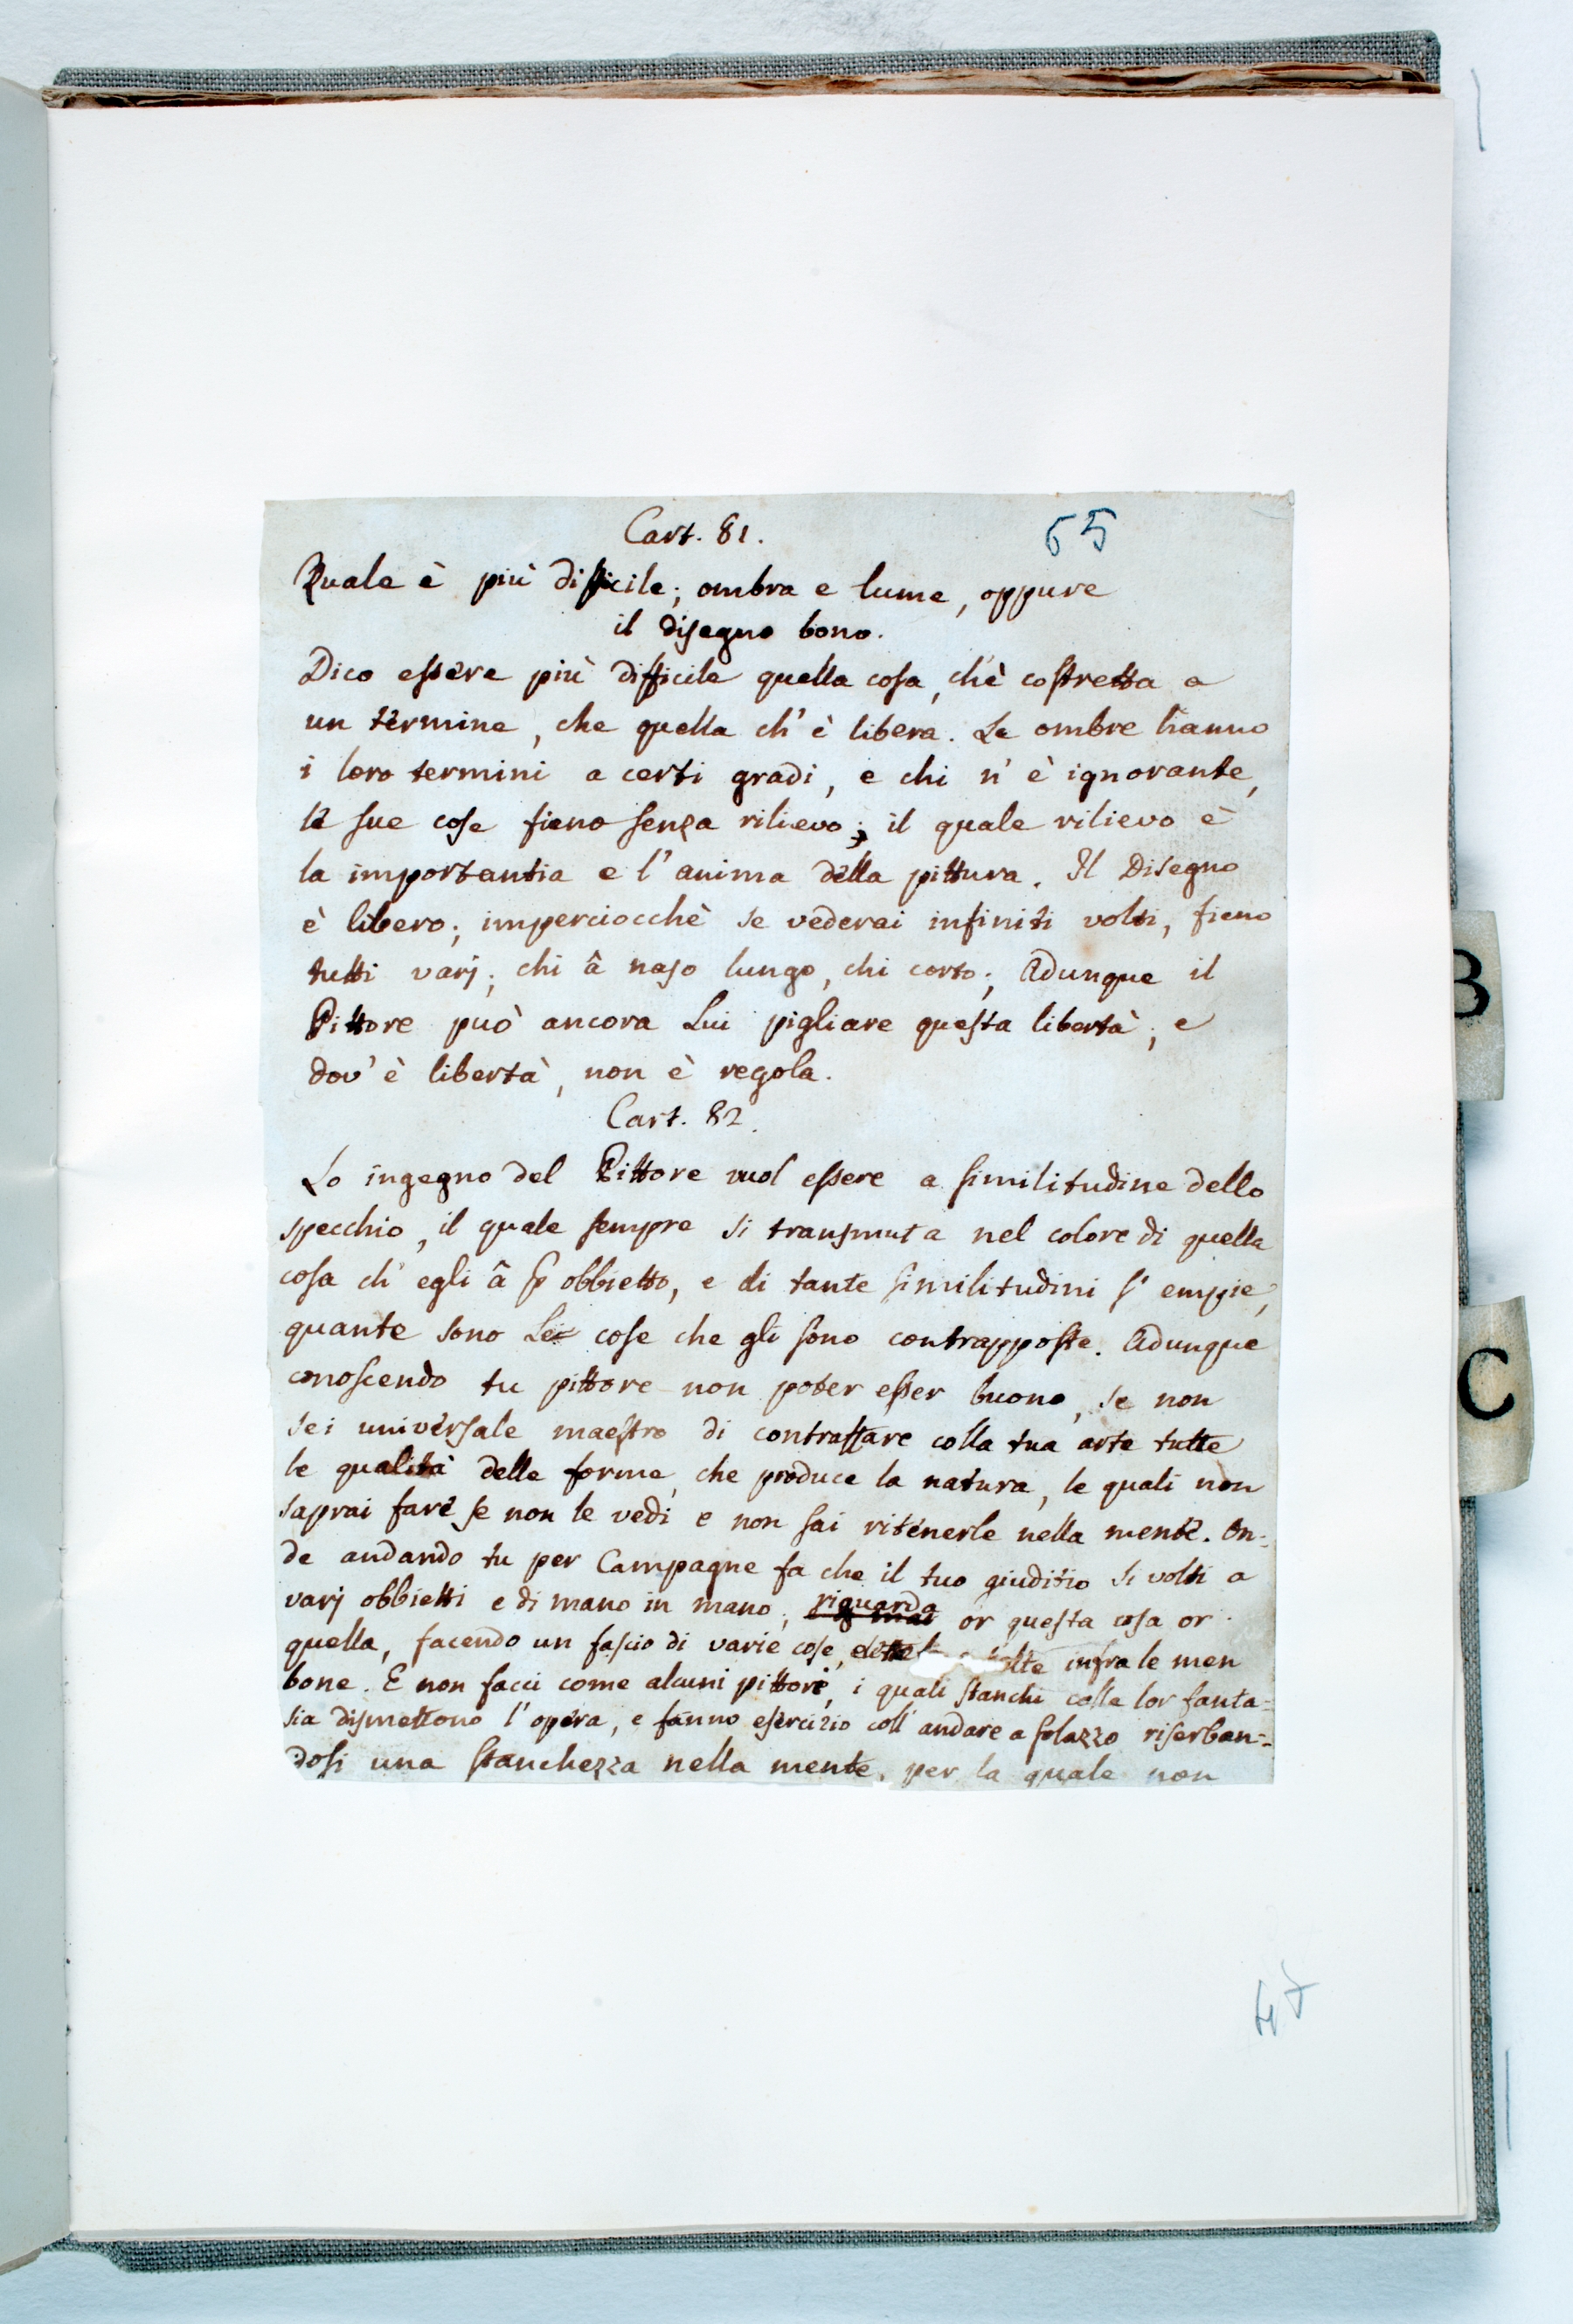 Cart. 81.
65
Quale è più difficile; ombra e lume, oppure
il disegno bono.
Dico essere più difficile quella cosa, ch'è costretta a
un termine, che quella ch'è libera. Le ombre hanno
i loro termini a certi gradi, e chi n'è ignorante,
le sue cose fieno senza rilievo; il quale rilievo è
la importantia e l'anima della pittura. Il Disegno
è libero; imperciocchè se vederai infiniti volti, fieno
tutti varj; chi â naso lungo, chi corto; Adunque il
Pittore può ancora Lui pigliare questa libertà; e
dov'è libertà, non è regola.
Cart. 82.
Lo ingegno del Pittore vuol essere a similitudine dello
specchio, il quale sempre si transmuta nel colore di quella
cosa ch'egli â p obbietto, e di tante similitudini s'empie,
quante sono Le cose che gli sono contrapposte. Adunque
conoscendo tu pittore non poter esser buono, se non
sei universale maestro di contraffare colla tua arte tutte
le qualità delle forme, che produce la natura, le quali non
saprai fare se non le vedi e non sai ritenerle nella mente. On-
de andando tu per Campagne fa che il tuo giuditio si volti a
varj obbietti e di mano in mano; riguarda or questa cosa or
quella, facendo un fascio di varie cose, infra le men
bone. E non facci come alcuni pittori, i quali stanchi colla lor fanta=
sia dismettono l'opera, e fanno esercizio coll'andare a solazzo riserban=
dosi una stanchezza nella mente, per la quale non
47
B
C